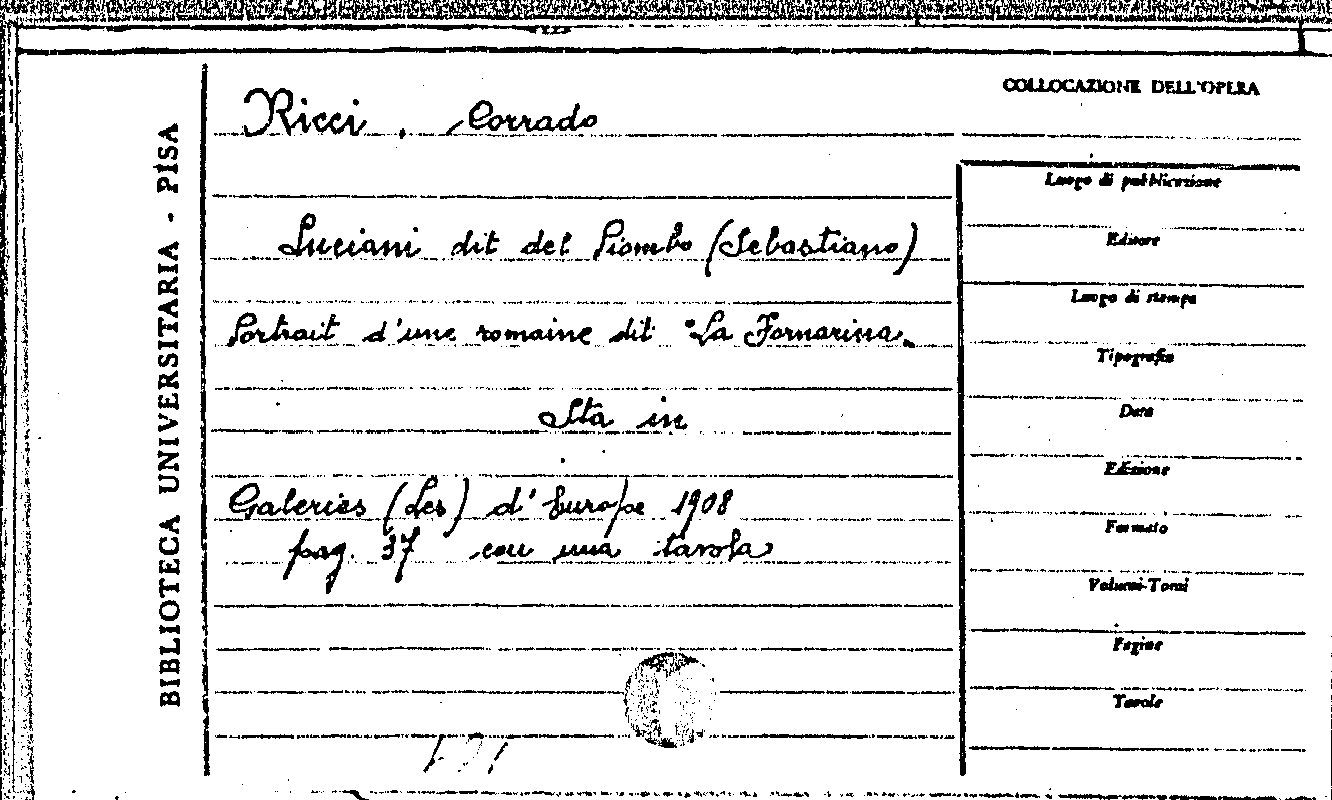 BIBLIOTECA UNIVERSITARIA - PISA
Ricci, Corrado
Luciani dit del Piombo (Sebastiano)
Portrait d'une romaine dit "La Fornarina"
Sta in
Galeries (des) d'Europe 1908
pag. 37 con una tavola
COLLOCAZIONE DELL'OPERA
Luogo di pubblicazione
Editore
Luogo di stampa
Tipografia
Data
Edizione
Formato
Volumi-Tomi
Pagine
Tavole